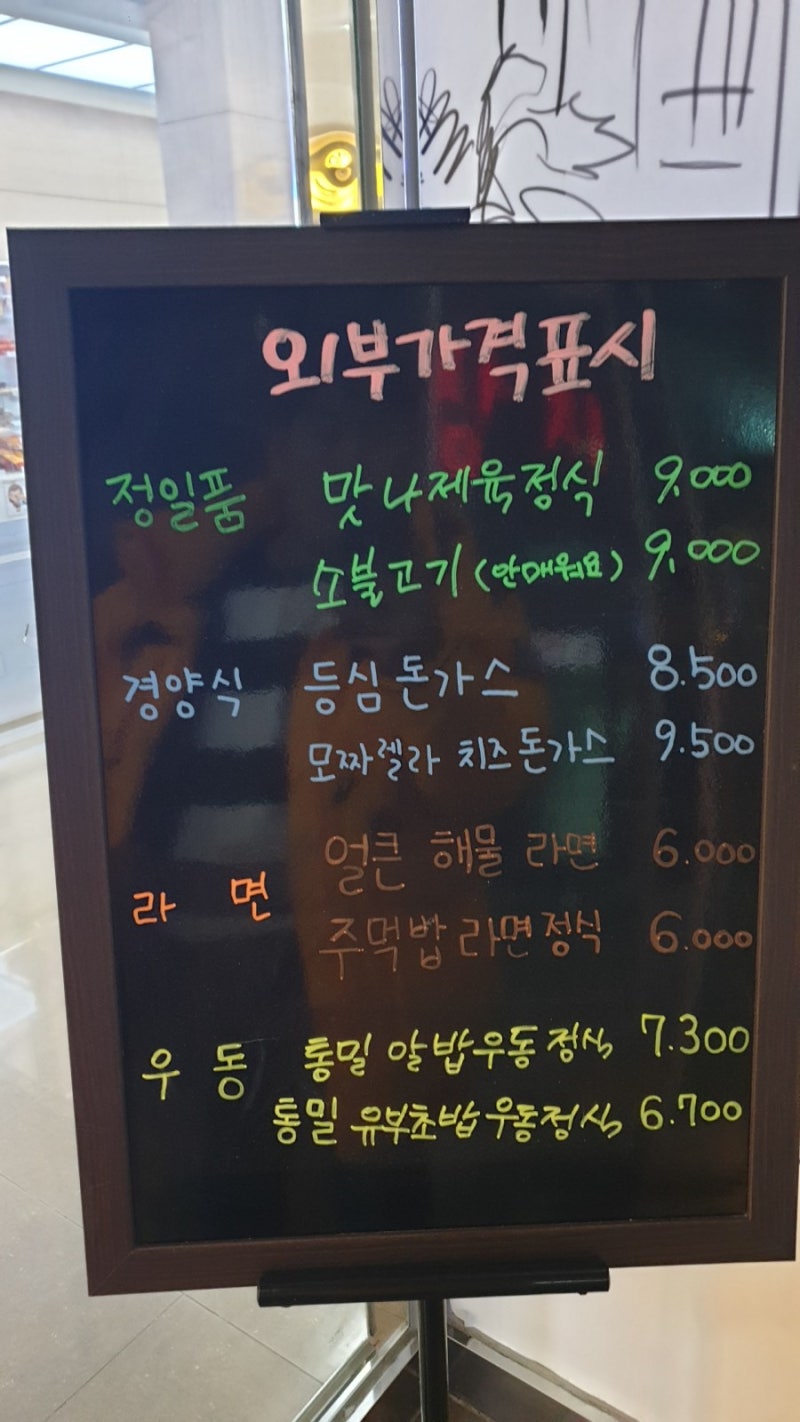 외부가격표시
정일품 맛나제육정식 9.000
소불고기 (안매워요) 9.000
경양식 등심돈가스 8.500
모짜렐라 치즈돈가스 9.500
얼큰 해물 라면 6.000
라 면
주먹밥 라면정식 6.000
우 동 통밀 알밥우동정식 7.300
통밀 유부초밥우동정식 6.700